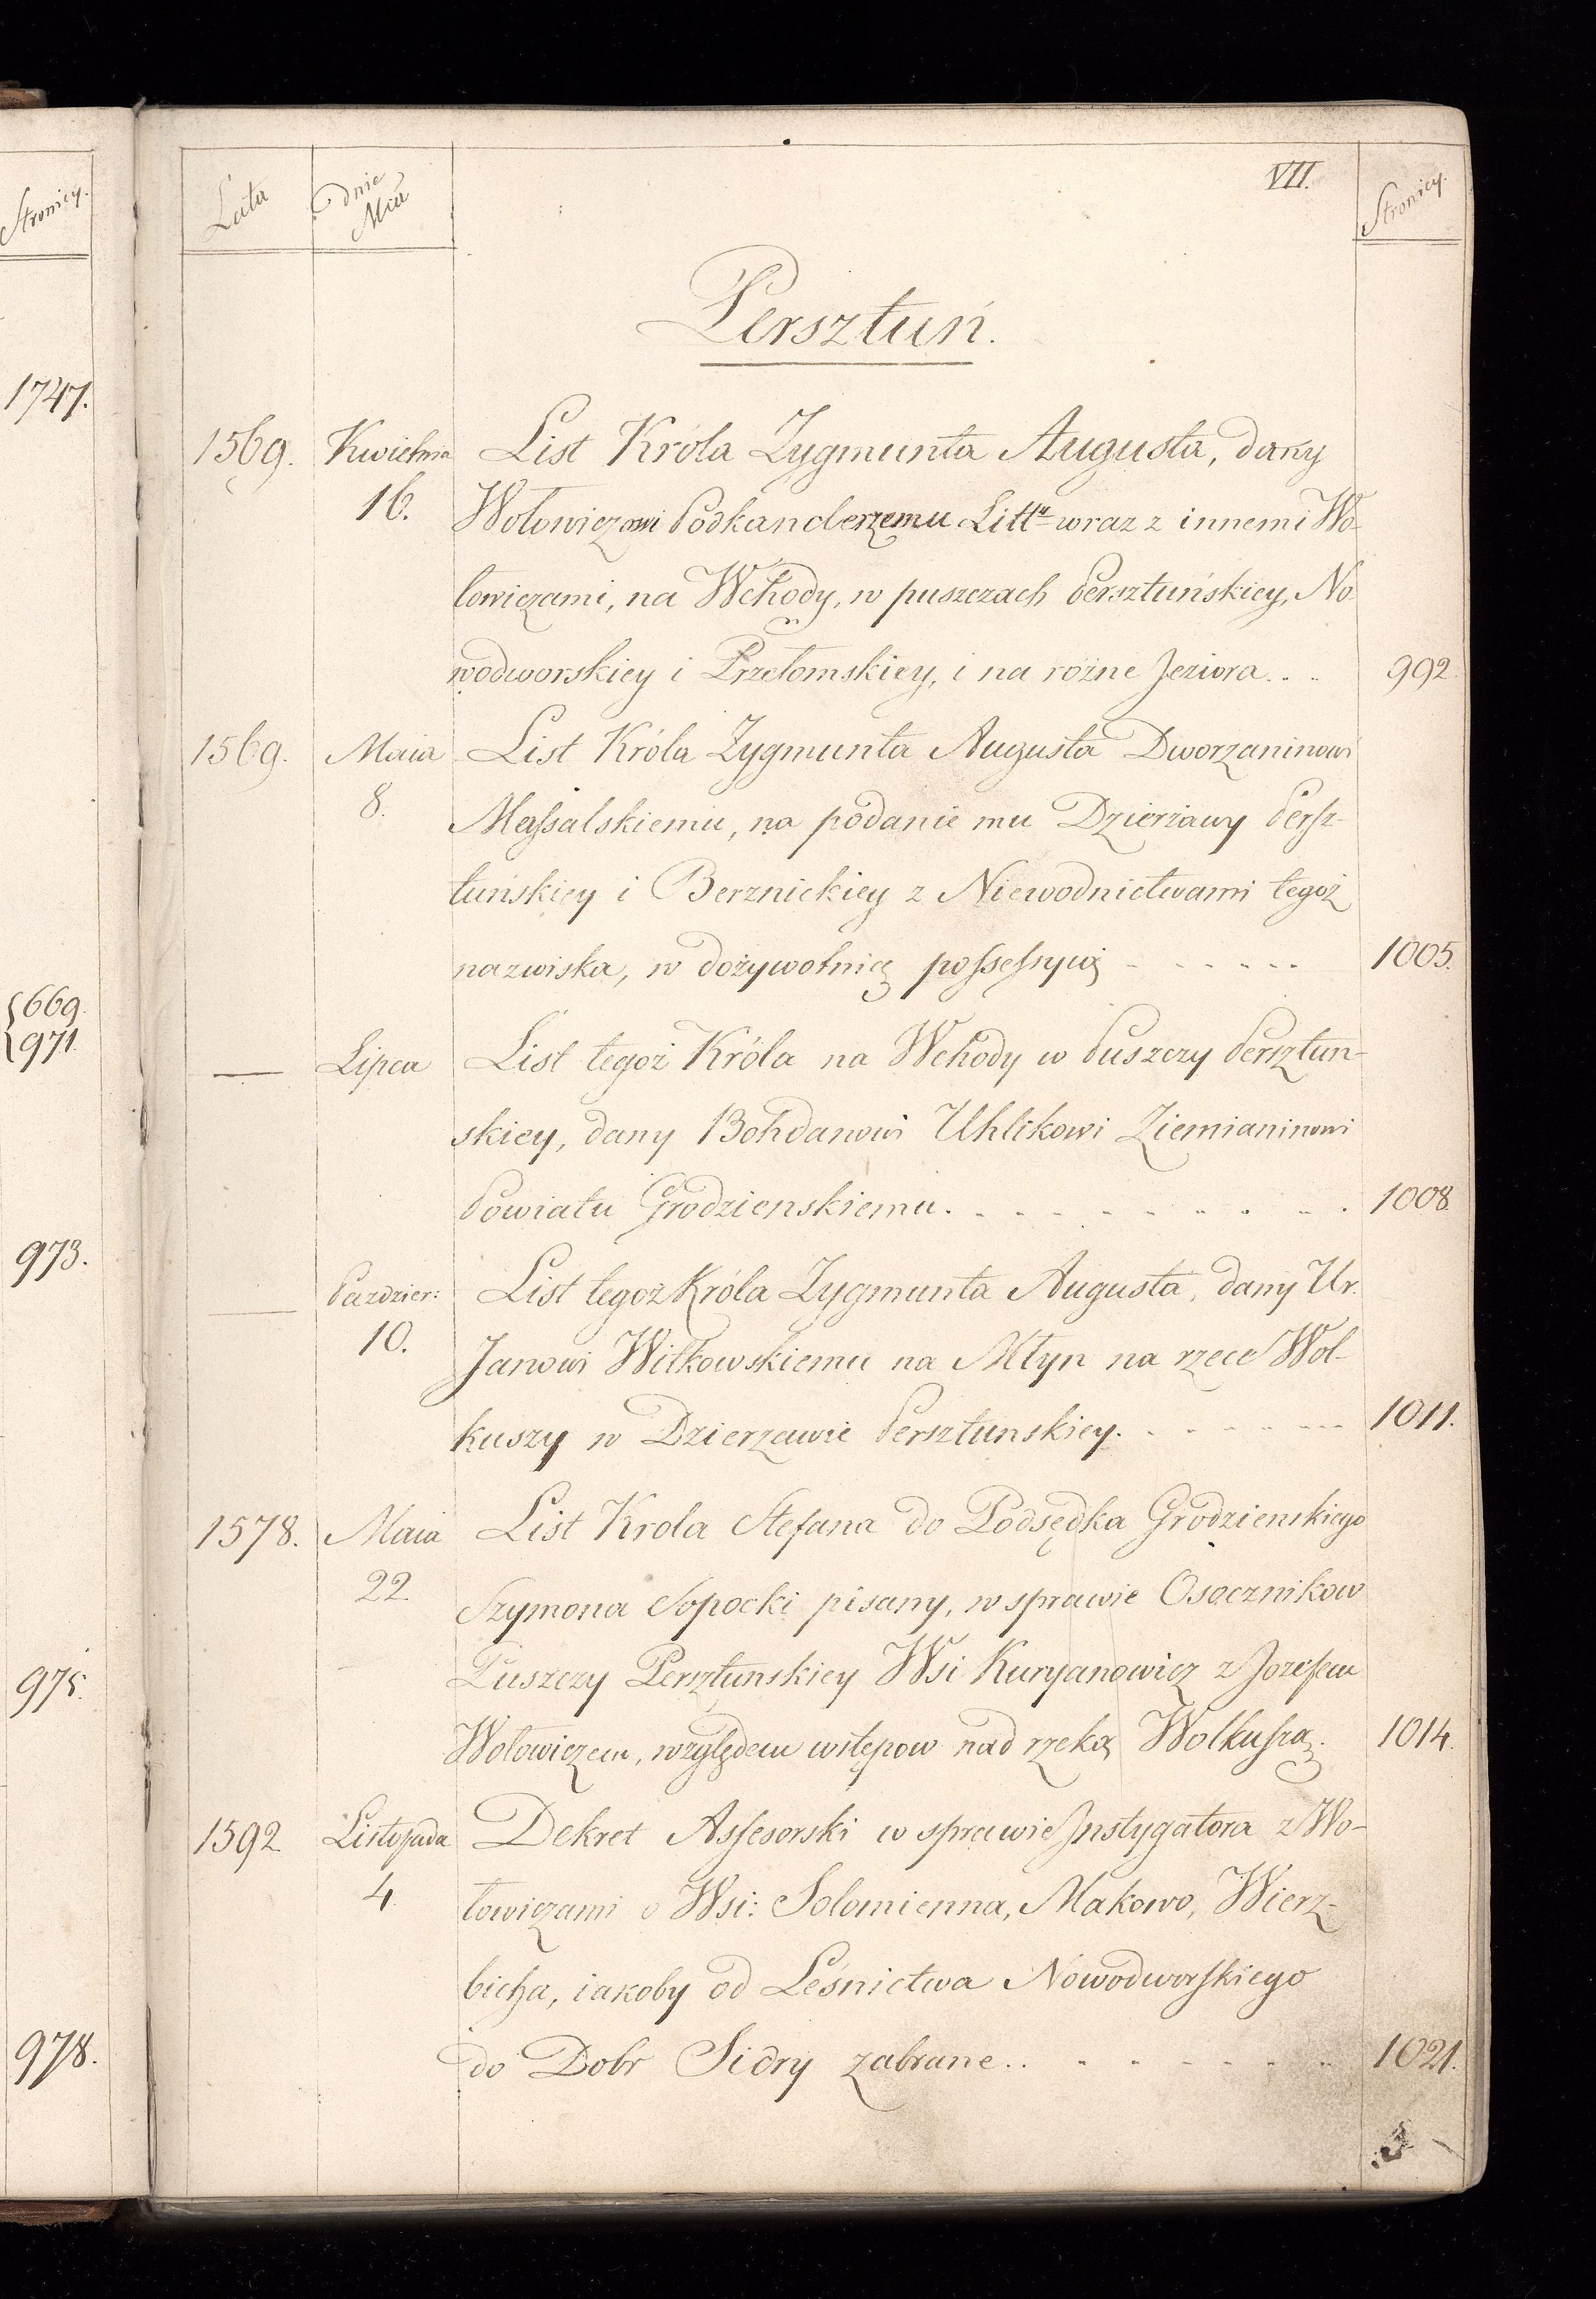 Stronicy.
1747.
{669.
{971.
973.
975.
978.
Lata
Dnie
Mca
VII.
Stronicy.
Persztuń.
1569. Kwietnia List Króla Zygmunta Augusta, dany
16. Wołowiczowi Podkanclerzemu Littu wraz z innemi Wo-
łowiczami, na Wchody, w puszczach Persztuńskiey, No
wodworskiey i Przełomskiey, i na różne Jeziora. . . . 992.
1569. Maia List Króla Zygmunta Augusta Dworzaninowi
8. Massalskiemu, na podanie mu Dzierżawy Persz-
tuńskiey i Berznickiey z Niewodnictwami tegoż
nazwiska, w dożywotnią possessyią - - - - - - 1005.
— Lipca List tegoż Króla na Wchody w Puszczy Persztun-
skiey, dany Bohdanowi Uhlikowi Ziemianinowi
Powiatu Grodzienskiemu. . . . . . . . . . . 1008.
— Pazdzier: List tegoż Króla Zygmunta Augusta, dany Ur.
10. Janowi Witkowskiemu na Młyn na rzece Wol-
kuszy w Dzierzawie Persztunskiey. . . . . . . 1011.
1578. Maia List Krola Stefana do Podsędka Grodzienskiego
22. Szymona Sopocki pisany, w sprawie Osocznikow
Puszczy Persztunskiey Wsi Kuryanowicz z Jozefem
Wołowiczem, względem wstępow nad rzeką Wolkuszą. 1014.
1592. Listopada Dekret Assesorski w sprawie Instygatora z Wo-
4. łowiczami o Wsi: Solomienna, Makowo, Wierz-
bicha, iakoby od Leśnictwa Nowodworskiego
do Dobr Sidry zabrane. . . . . . . . 1021.